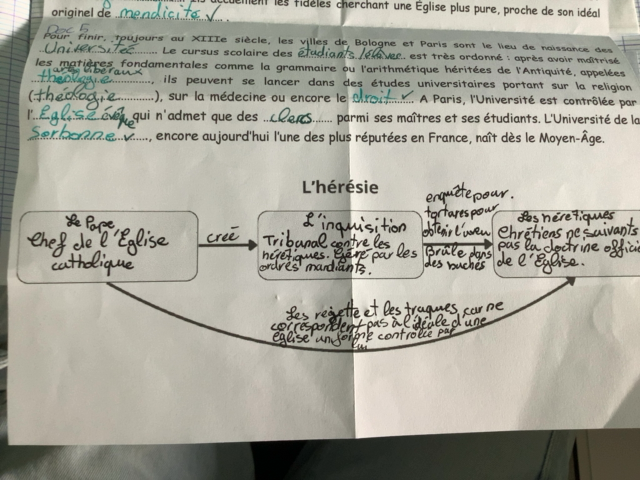 les fidèles cherchant une Église plus pure, proche de son idéal
originel de mendicité
Doc 5
Pour finir, toujours au XIIIe siècle, les villes de Bologne et Paris sont le lieu de naissance des
Universités. Le cursus scolaire des étudiants/élèves est très ordonné : après avoir maîtrisé
les matières fondamentales comme la grammaire ou l'arithmétique héritées de l'Antiquité, appelées
arts libéraux
théologie, ils peuvent se lancer dans des études universitaires portant sur la religion
(théologie), sur la médecine ou encore le droit. A Paris, l'Université est contrôlée par
l'Église qui n'admet que des clercs parmi ses maîtres et ses étudiants. L'Université de la
Sorbonne, encore aujourd'hui l'une des plus réputées en France, naît dès le Moyen-Âge.
L'hérésie
Le Pape
Chef de l'Église
catholique
créé
L'inquisition
Tribunal contre les
hérétiques. Géré par les
ordres mandiants.
enquête pour.
tortures pour
obtenir l'aveu
Brûle dans
des buchés
Les hérétiques
Chrétiens ne suivants
pas la doctrine offici
de l'Église.
Les rejette et les traques, car ne
correspondent pas à l'idéale d'une
église uniforme contrôlée par
lui